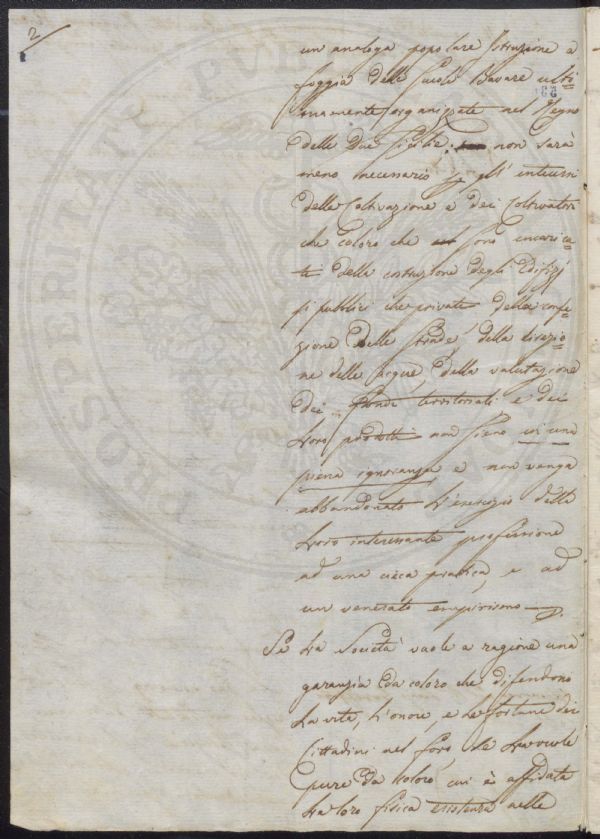 2
un analoga popolare istruzione a
foggia delle Scuole Bavare ulti=
mamente organizzate nel Regno
delle due Sicilie. non sarà
meno necessario p gl' interessi
della Coltivazione e dei Coltivatori
che coloro che sono incarica=
ti della costruzione degli Edifizj
si pubblici che privati della confe=
zione delle Strade, della direzio=
ne delle acque, della valutazione
dei fondi territoriali e dei
loro prodotti non sieno in una
piena ignoranza e non venga
abbandonato l'esercizio della
loro interessante professione
ad una cieca pratica, e ad
un venerato empirismo
Se la Società vuole a ragione una
garanzia da coloro che difendono
la vita, l'onore, e le fortune dei
Cittadini nel foro, se la vuole
pure da coloro cui è affidata
la loro fisica esistenza nelle
PROSPERITATI PUB